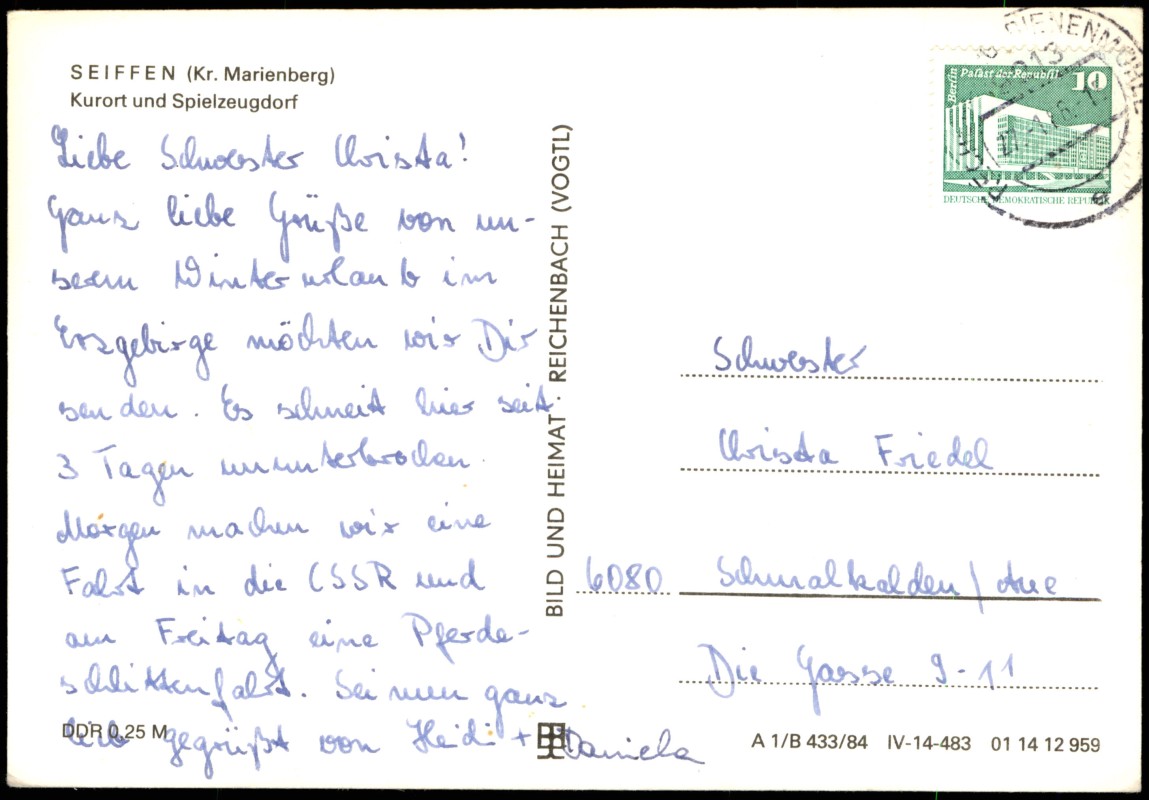 SEIFFEN (Kr. Marienberg)
Kurort und Spielzeugdorf
Liebe Schwester Christa!
Ganz liebe Grüße von un-
serem Winterurlaub im
Erzgebirge möchten wir Dir
senden. Es schneit hier seit
3 Tagen ununterbrochen.
Morgen machen wir eine
Fahrt in die CSSR und
am Freitag eine Pferde-
schlittenfahrt. Sei nun ganz
lieb gegrüßt von Heidi + Daniela
DDR 0,25 M
BILD UND HEIMAT · REICHENBACH (VOGTL)
Berlin
Palast der Republik
10
DEUTSCHE DEMOKRATISCHE REPUBLIK
BIENENMÜHLE
Schwester
Christa Friedel
6080 Schmalkalden / Aue
Die Gasse 9-11
A 1/B 433/84 IV-14-483 01 14 12 959